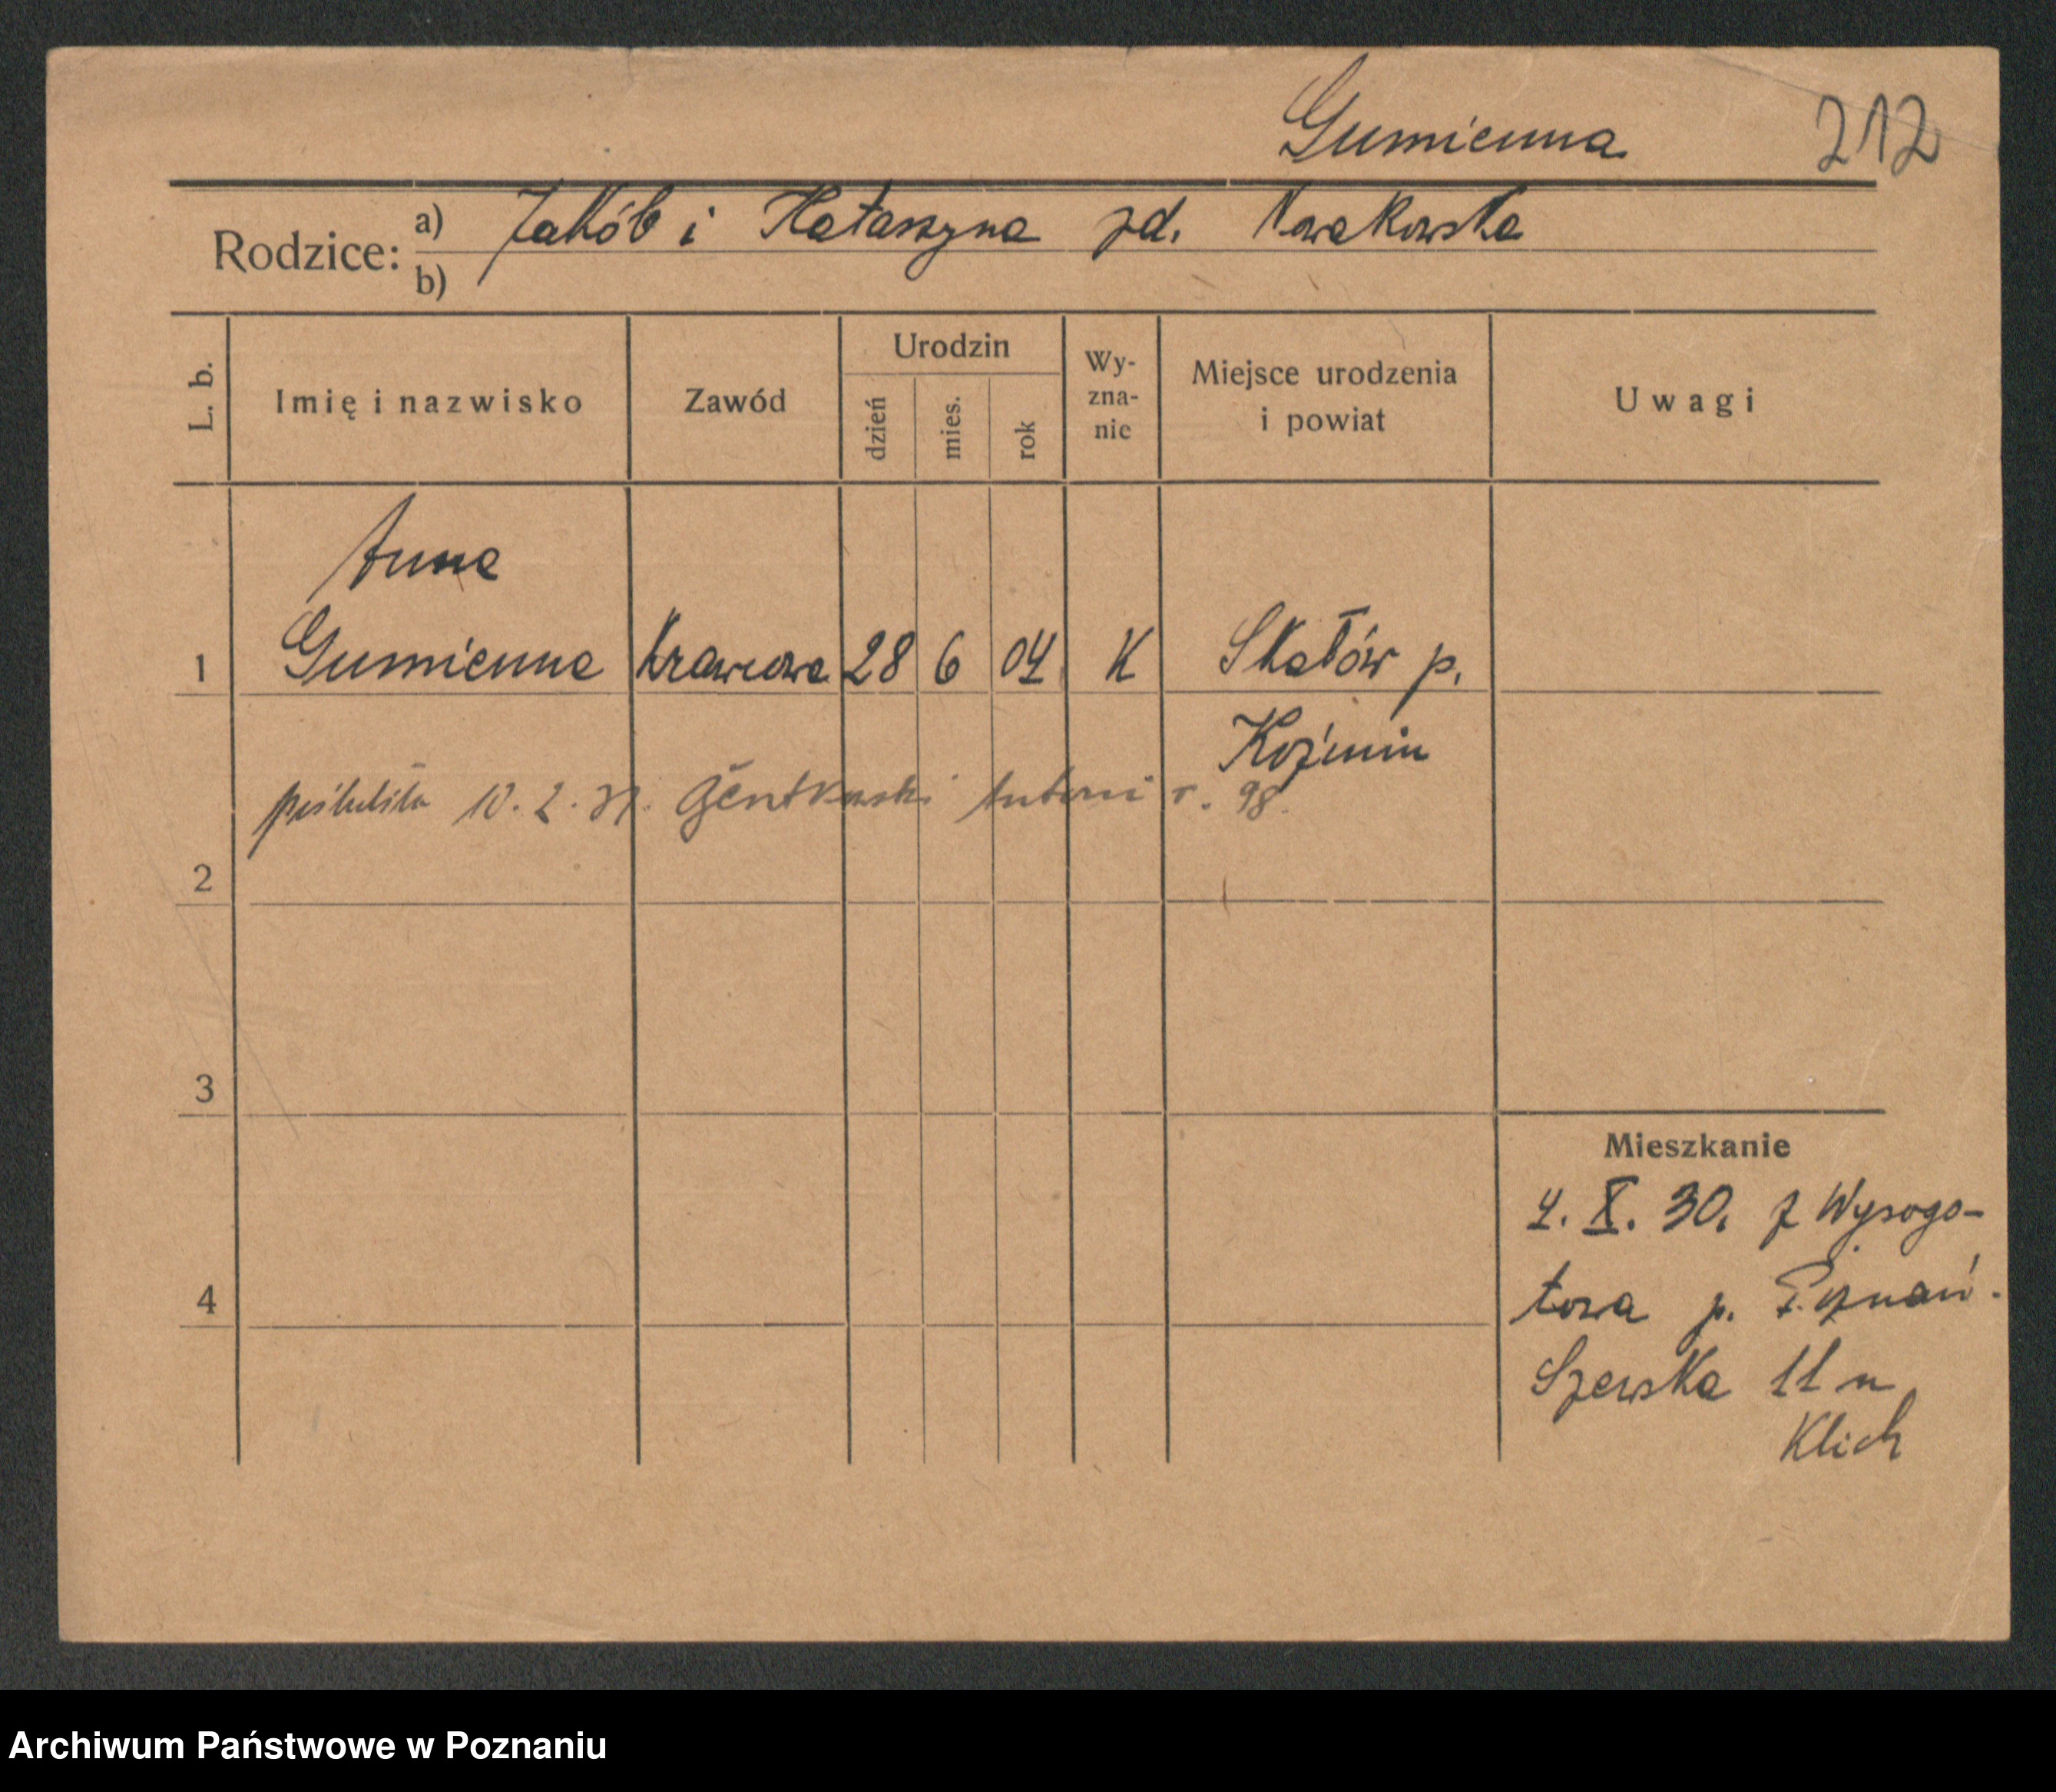 Gumienna 212
Rodzice: a) Jakób i Katarzyna zd. Nowakowska
b)
L. b.
Imię i nazwisko
Zawód
Urodzin
dzień
mies.
rok
Wy-
zna-
nie
Miejsce urodzenia
i powiat
Uwagi
Anna
1 Gumienna Krawcowa 28 6 04 K Skałów p.
Koźmin
poślubiła 10. 2. 31. Gentkowski Antoni r. 98.
2
3
Mieszkanie
4. X. 30. z Wysogo-
4 towa p. Poznań.
Szewska 11 u
Klich
Archiwum Państwowe w Poznaniu